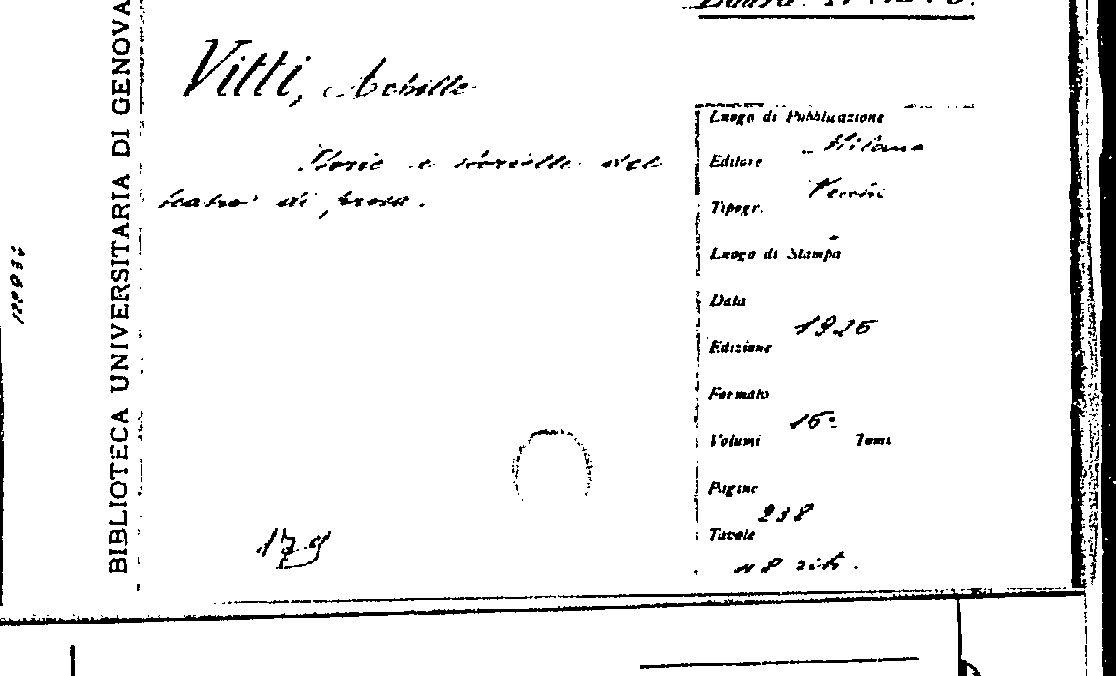 BIBLIOTECA UNIVERSITARIA DI GENOVA
Vitti, Achille
Storie e storielle del
teatro di prosa.
Luogo di Pubblicazione
Milano
Editore
Vecchi
Tipogr.
Luogo di Stampa
Data
1926
Edizione
Formato
16°
Volumi Tomi
Pagine
238
Tavole
n 8 ritr.
179